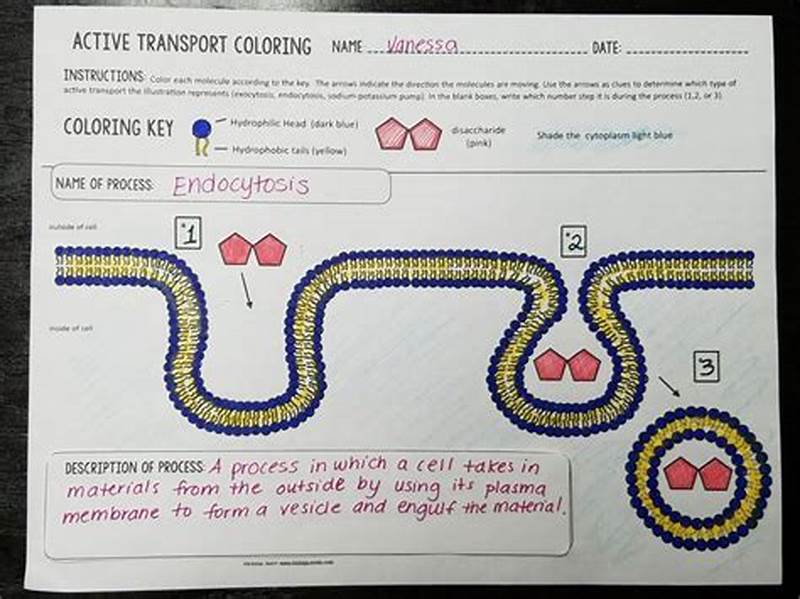 ACTIVE TRANSPORT COLORING NAME Vanessa DATE:
INSTRUCTIONS: Color each molecule according to the key. The arrows indicate the direction the molecules are moving. Use the arrows as clues to determine which type of
active transport the illustration represents (exocytosis, endocytosis, sodium-potassium pump). In the blank boxes, write which number step it is during the process (1,2, or 3).
COLORING KEY
Hydrophilic Head (dark blue)
Hydrophobic tails (yellow)
disaccharide
(pink)
Shade the cytoplasm light blue
NAME OF PROCESS: Endocytosis
outside of cell
1
2
inside of cell
3
DESCRIPTION OF PROCESS: A process in which a cell takes in
materials from the outside by using its plasma
membrane to form a vesicle and engulf the material.